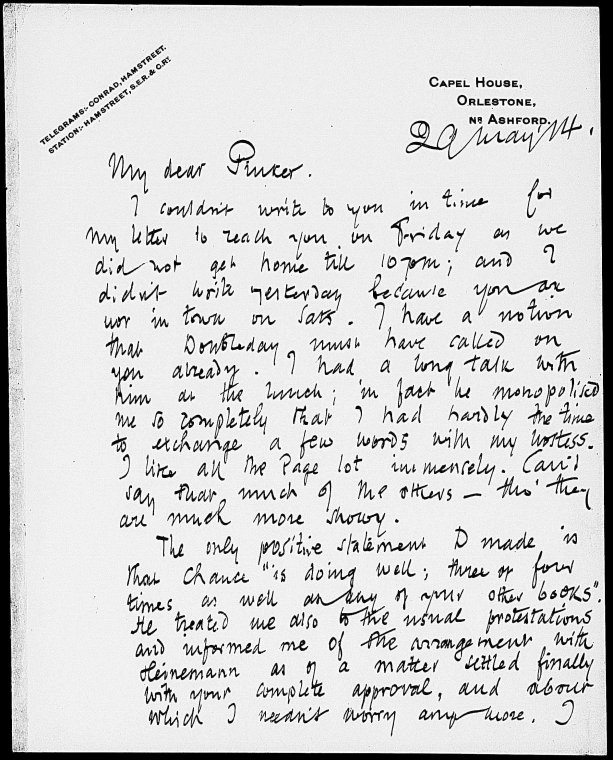 TELEGRAMS:- CONRAD, HAMSTREET.
STATION:- HAMSTREET, S.E.R. & C.RY.
CAPEL HOUSE,
ORLESTONE,
NR ASHFORD.
29 May '14.
My dear Pinker.
I couldn't write to you in time for
my letter to reach you on Friday as we
did not get home till 10pm; and I
didn't write yesterday because you are
not in town on Sats. I have a notion
that Doubleday must have called on
you already. I had a long talk with
him at the lunch; in fact he monopolised
me so completely that I had hardly the time
to exchange a few words with my hostess.
I like all the Page lot immensely. Can't
say that much of the others — tho' they
are much more showy.
The only positive statement D made is
that Chance "is doing well; three or four
times as well as any of your other books".
He treated me also to the usual protestations
and informed me of the arrangement with
Heinemann as of a matter settled finally
with your complete approval, and about
which I needn't worry any more. I